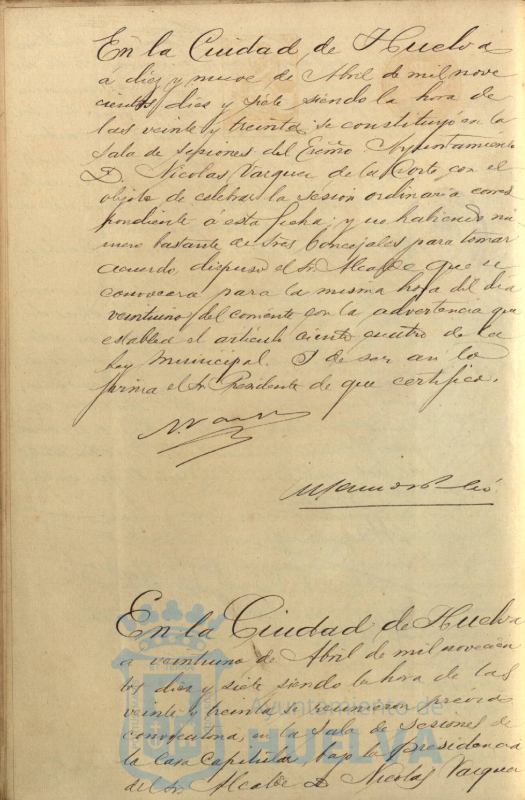 En la Cuidad de Huelva
a diez y nueve de Abril de mil nove
cientos dies y siete siendo la hora de
las veinte y treinta, se constituyó en la
Sala de sesiones del Excmo Ayuntamiento
D. Nicolas Vazquez de la Corte con el
objeto de celebrar la sesión ordinaria corres
pondiente á esta fecha; y no habiendo nú
mero bastante de Sres Concejales para tomar
acuerdo dispuso el Sr. Alcalde que se
convocara para la misma hora del día
veintiuno del corriente con la advertencia que
establece el artículo ciento cuatro de la
Ley Municipal. Y de ser así lo
firma el Sr. Presidente de que certifico.
En la Ciudad de Huelva
a veintiuno de Abril de mil novecien
tos diez y siete siendo la hora de las
veinte y treinta se reunieron previa
convocatoria, en la Sala de Sesiones de
la Casa Capitular bajo la presidencia
del Sr. Alcalde D. Nicolas Vazquez
Ayuntamiento de
HUELVA